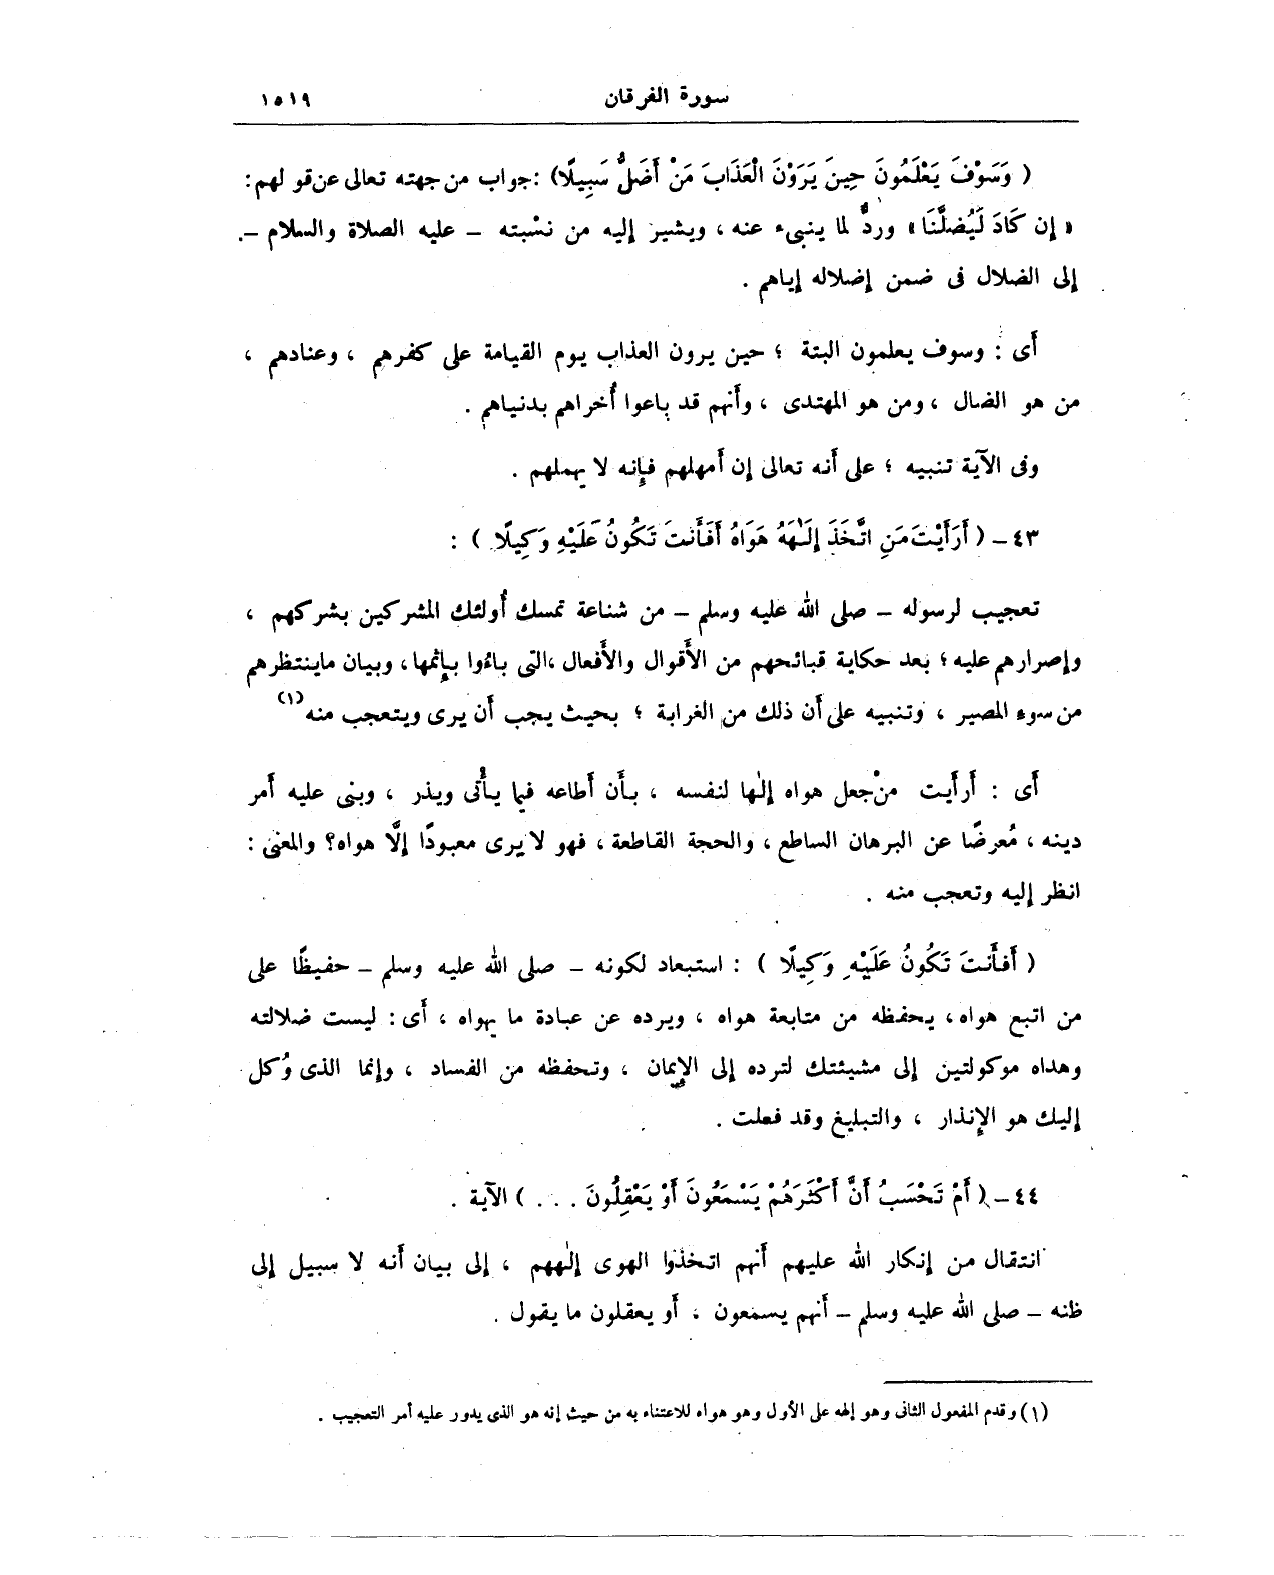 سورة الفرقان ١٥١٩
( وَسَوْفَ يَعْلَمُونَ حِينَ يَرَوْنَ الْعَذَابَ مَنْ أَضَلُّ سَبِيلًا) : جواب من جهته تعالى عن قولهم :
« إن كَادَ لَيُضلُّنَا » وردٌّ لما ينبىء عنه ، ويشير إليه من نسْبته – عليه الصلاة والسلام –.
إلى الضلال فى ضمن إضلاله إياهم .
أى : وسوف يعلمون البتة ؛ حين يرون العذاب يوم القيامة على كفرهم ، وعنادهم ،
من هو الضال ، ومن هو المهتدى ، وأنهم قد باعوا أُخراهم بدنياهم .
وفى الآية تنبيه ؛ على أنه تعالى إن أمهلهم فإنه لا يهملهم .
٤٣ – ( أَرَأَيْتَ مَنِ اتَّخَذَ إِلَٰهَهُ هَوَاهُ أَفَأَنتَ تَكُونُ عَلَيْهِ وَكِيلًا ) :
تعجيب لرسوله – صلى الله عليه وسلم – من شناعة تمسك أُولئك المشركين بشركهم ،
وإصرارهم عليه ؛ بعد حكاية قبائحهم من الأَقوال والأَفعال ،التى باءُوا بإثمها، وبيان ماينتظرهم
من سوء المصير ، وتنبيه على أن ذلك من الغرابة ؛ بحيث يجب أن يرى ويتعجب منه (١)
أى : أرأيت منْ جعل هواه إلٰها لنفسه ، بأن أطاعه فيما يأْتى ويذر ، وبنى عليه أمر
دينه ، مُعرضًا عن البرهان الساطع ، والحجة القاطعة ، فهو لا يرى معبودًا إلَّا هواه؟ والمعنى :
انظر إليه وتعجب منه .
( أَفَأَنتَ تَكُونُ عَلَيْهِ وَكِيلًا ) : استبعاد لكونه – صلى الله عليه وسلم – حفيظًا على
من اتبع هواه ، يحفظه من متابعة هواه ، ويرده عن عبادة ما يهواه ، أى : ليست ضلالته
وهداه موكولتين إلى مشيئتك لترده إلى الإيمان ، وتحفظه من الفساد ، وإنما الذى وُكل
إليك هو الإنذار ، والتبليغ وقد فعلت .
٤٤ – ( أَمْ تَحْسَبُ أَنَّ أَكْثَرَهُمْ يَسْمَعُونَ أَوْ يَعْقِلُونَ . . . ) الآية .
انتقال من إنكار الله عليهم أنهم اتخذوا الهوى إلٰههم ، إلى بيان أنه لا سبيل إلى
ظنه – صلى الله عليه وسلم – أنهم يسمعون ، أو يعقلون ما يقول .
(١) وقدم المفعول الثانى وهو إلهه على الأول وهو هواه للاعتناء به من حيث إنه هو الذى يدور عليه أمر التعجيب .